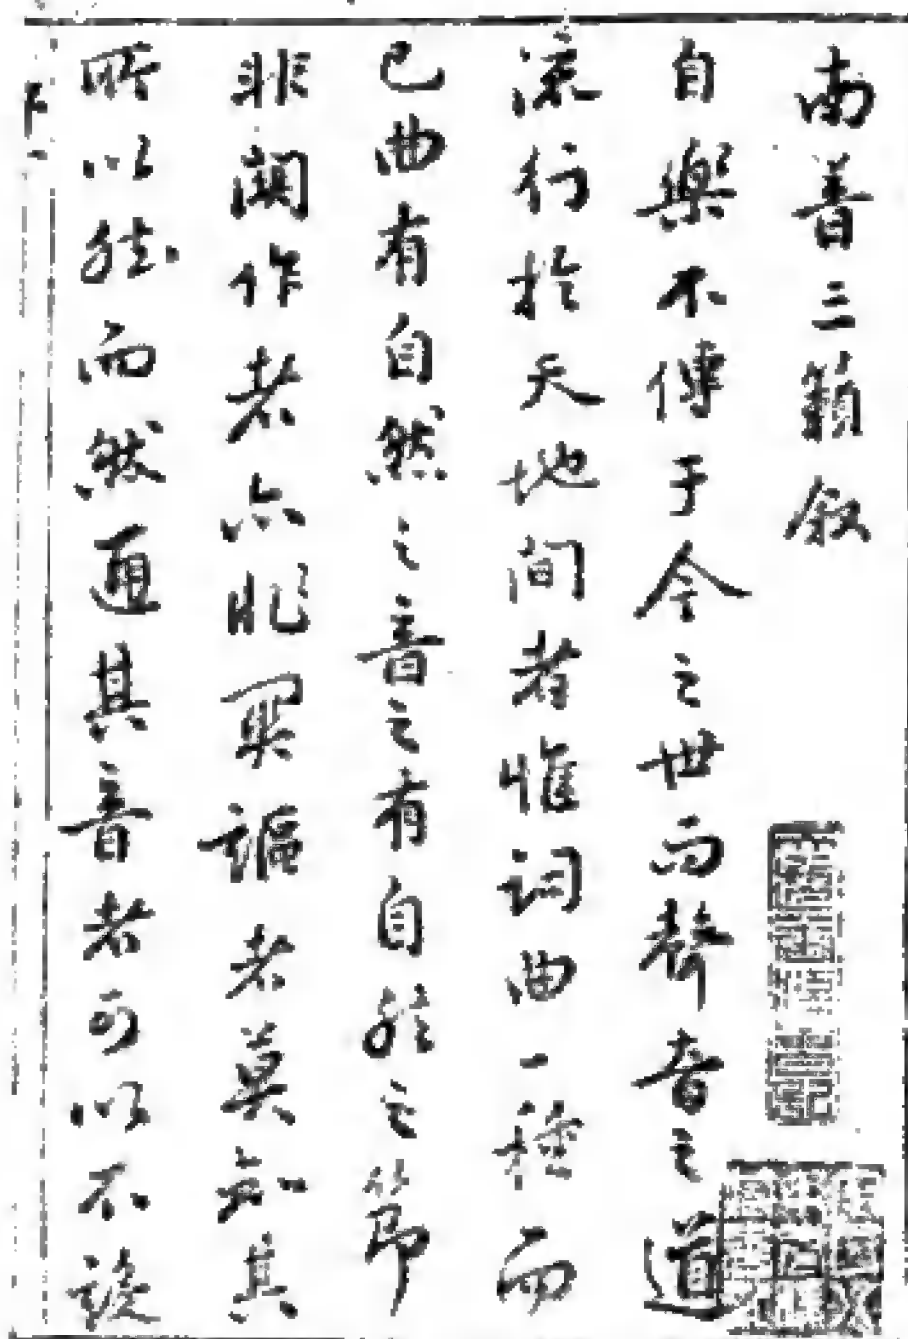 南音三籟叙
自樂不傳于今之世而聲音之道
流行於天地間者惟詞曲一種而
已曲有自然之音音有自然之節
非関作者亦非関謳者莫知其
所以然而然通其音者可以不設